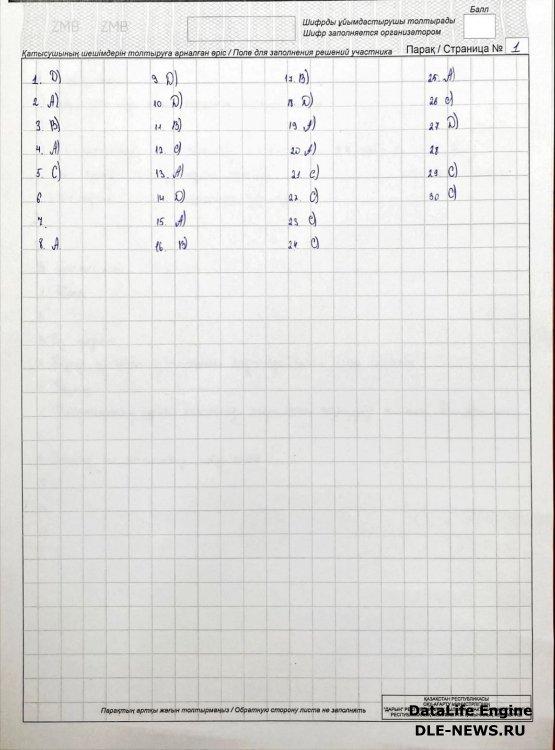 ZMB ZMB
Балл
Шифрды ұйымдастырушы толтырады
Шифр заполняется организатором
Қатысушының шешімдерін толтыруға арналған өріс / Поле для заполнения решений участника
Парақ / Страница № 1
1. D)
2 A)
3 B)
4. A)
5. C)
6
7.
8. A.
9 D)
10 D)
11 B)
12. C)
13. A)
14 D)
15. A)
16. B)
17. B)
18. D)
19 A)
20 A)
21 C)
22 C)
23 C)
24 C)
25. A)
26 C)
27 D)
28
29 C)
30 C)
Парақтың артқы жағын толтырмаңыз / Обратную сторону листа не заполнять
ҚАЗАҚСТАН РЕСПУБЛИКАСЫ
ОҚУ-АҒАРТУ МИНИСТРЛІГІНІҢ
DataLife Engine
DLE-NEWS.RU